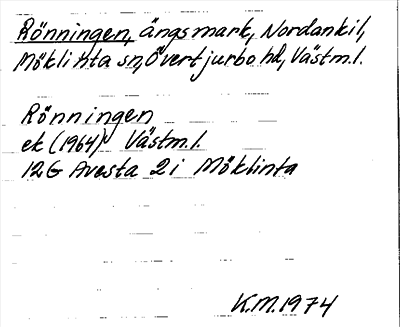 Rönningen, ängsmark, Nordankil,
Möklinta sn, Övertjurbo hd, Västm.l.
Rönningen
ek (1964) Västm.l.
12G Avesta 2i Möklinta
K.M. 1974